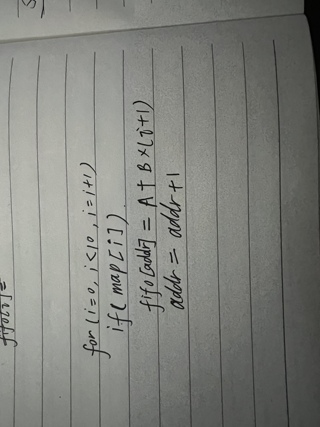 for (i=0, i<10, i=i+1)
if( map[i])
fifo[addr] = A + B×(i+1)
addr = addr +1